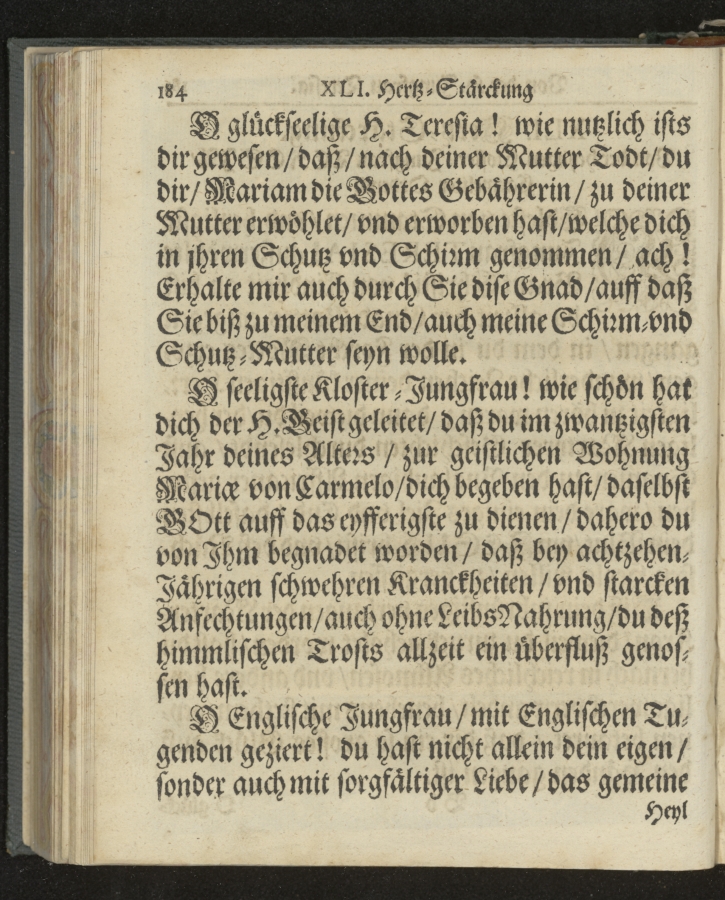 184 XLI. Hertz-Stärckung
O glückseelige H. Teresia! wie nutzlich ists
dir gewesen/ daß/ nach deiner Mutter Todt/ du
dir/ Mariam die Gottes Gebährerin/ zu deiner
Mutter erwöhlet/ vnd erworben hast/ welche dich
in jhren Schutz vnd Schirm genommen/ ach!
Erhalte mir auch durch Sie dise Gnad/ auff daß
Sie biß zu meinem End/ auch meine Schirm-vnd
Schutz-Mutter seyn wolle.
O seeligste Kloster-Jungfrau! wie schön hat
dich der H. Geist geleitet/ daß du im zwantzigsten
Jahr deines Alters/ zur geistlichen Wohnung
Mariæ von Carmelo/ dich begeben hast/ daselbst
GOtt auff das eyfferigste zu dienen/ dahero du
von Jhm begnadet worden/ daß bey achtzehen-
Jährigen schwehren Kranckheiten/ vnd starcken
Anfechtungen/ auch ohne LeibsNahrung/ du deß
himmlischen Trosts allzeit ein überfluß genos-
sen hast.
O Englische Jungfrau/ mit Englischen Tu-
genden geziert! du hast nicht allein dein eigen/
sonder auch mit sorgfältiger Liebe/ das gemeine
Heyl